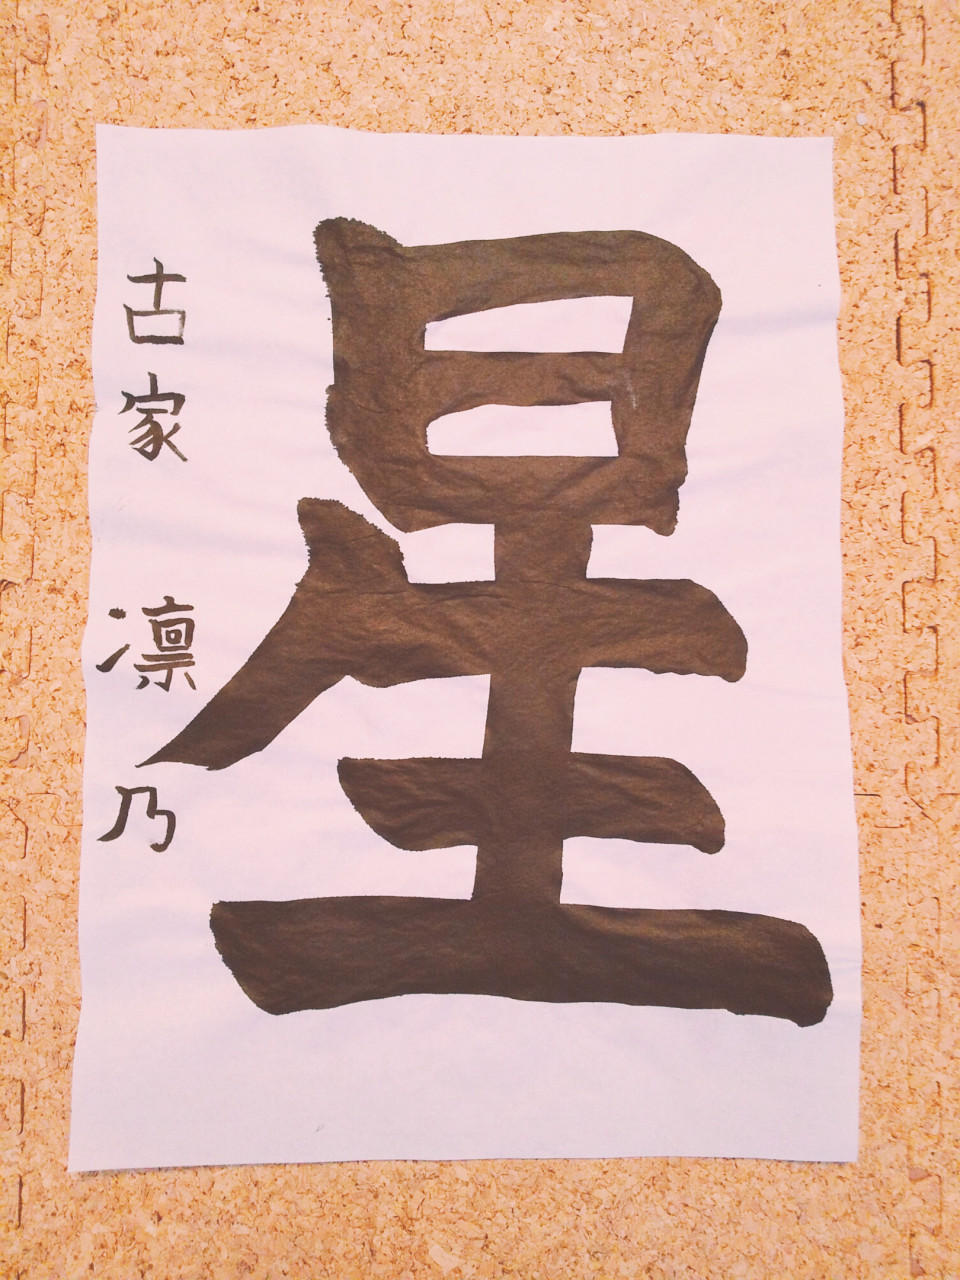 星
古家 凛乃